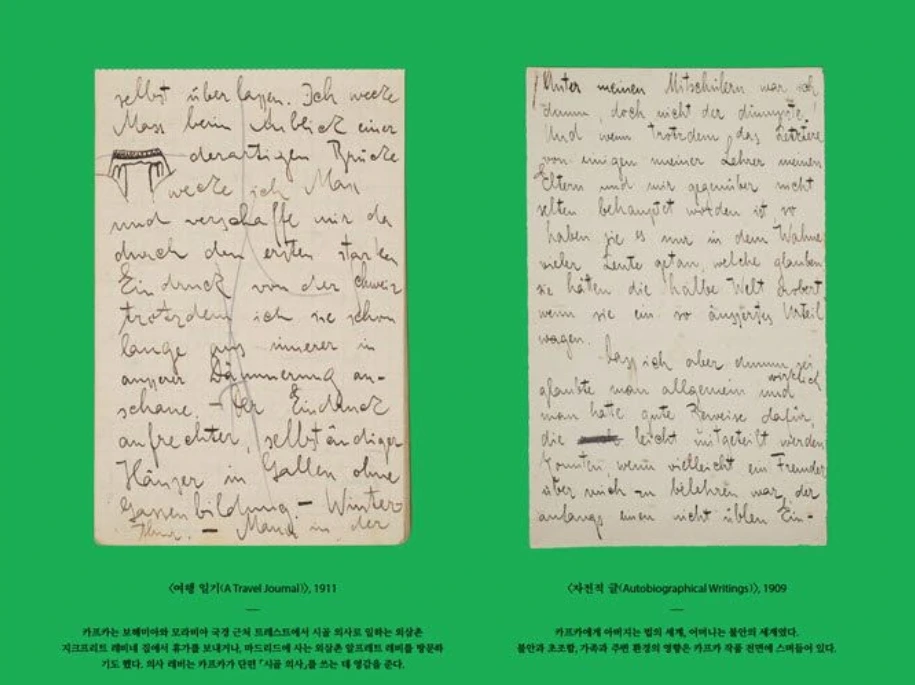 selbst überlassen. Ich wecke
Max beim Anblick einer
derartigen Brücke
wecke ich Max
und verschaffe mir da
durch den ersten starken
Eindruck von der Schweiz
trotzdem ich sie schon
lange aus innerer in
äusserer Dämmerung an-
schaue. – Der Eindruck
aufrechter, selbständiger
Häuser in Gallen ohne
Gassenbildung. – Winter
– Mann in der
〈여행 일기(A Travel Journal)〉, 1911
카프카는 보헤미아와 모라비아 국경 근처 트레스트에서 시골 의사로 일하는 외삼촌
지크프리트 레비네 집에서 휴가를 보내거나, 마드리드에 사는 외삼촌 알프레트 레비를 방문하
기도 했다. 의사 레비는 카프카가 단편 「시골 의사」를 쓰는 데 영감을 준다.
Unter meinen Mitschülern war ich
dumm, doch nicht der dümmste.
Und wenn trotzdem das letztere
von einigen meiner Lehrer meinen
Eltern und mir gegenüber nicht
selten behauptet worden ist so
haben sie es nur in dem Wahne
vieler Leute getan, welche glauben
sie hätten die halbe Welt erobert
wenn sie ein so äusserstes Urteil
wagen.
Dass ich aber dumm sei
wirklich
glaubte man allgemein und
man hatte gute Beweise dafür,
die leicht mitgeteilt werden
konnten, wenn vielleicht ein Fremder
über mich zu belehren war, der
anfangs einen nicht üblen Ein-
〈자전적 글(Autobiographical Writings)〉, 1909
카프카에게 아버지는 법의 세계, 어머니는 불안의 세계였다.
불안과 초조함, 가족과 주변 환경의 영향은 카프카 작품 전면에 스며들어 있다.